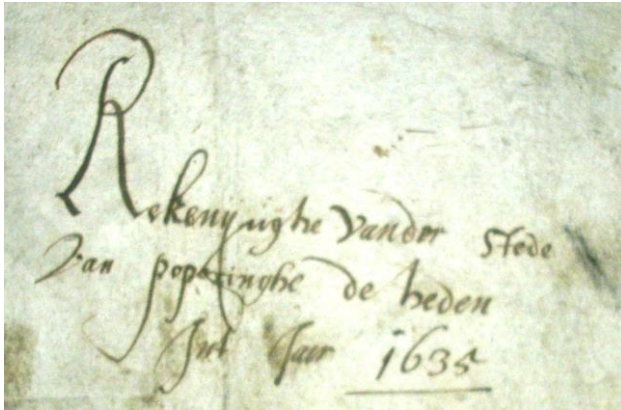 Rekenynghe vander stede
van poperinghe de heden
Int Jaer 1635